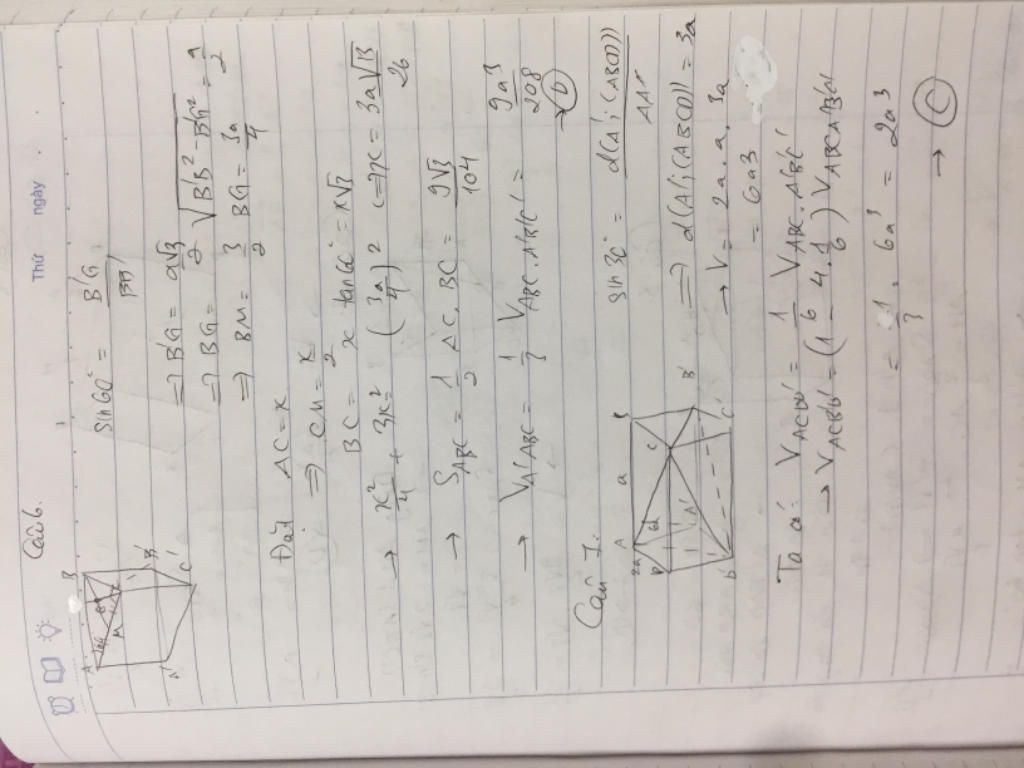 Thứ ngày
Câu 6.
A B M G A' B' C'
sin 60° = B'G / BB'
=> B'G = a√3 / 2
=> BG = √(BB'² - B'G²) = a/2
=> BM = 3/2 BG = 3a/4
Đặt AC = x
=> CM = x/2
BC = x tan 60° = x√3
→ x²/4 + 3x² = (3a/4)² <=> x = 3a√13 / 26
→ S_ABC = 1/2 AC. BC = 9√3 / 104
→ V_A'ABC = 1/3 V_ABC.A'B'C' = 9a³ / 208
→ D
Câu 7.
sin 30° = d(A'; (ABCD)) / AA'
=> d(A'; (ABCD)) = 3a
→ V = 2a. a. 3a
= 6a3
2a A a B D C A' B' D' C'
Ta có: V_ACB'D' = 1/6 V_ABC.A'B'C'
→ V_ACB'D' = (1 - 4. 1/6) V_ABCD.A'B'C'D'
= 1/3 . 6a³ = 2a³
→ C